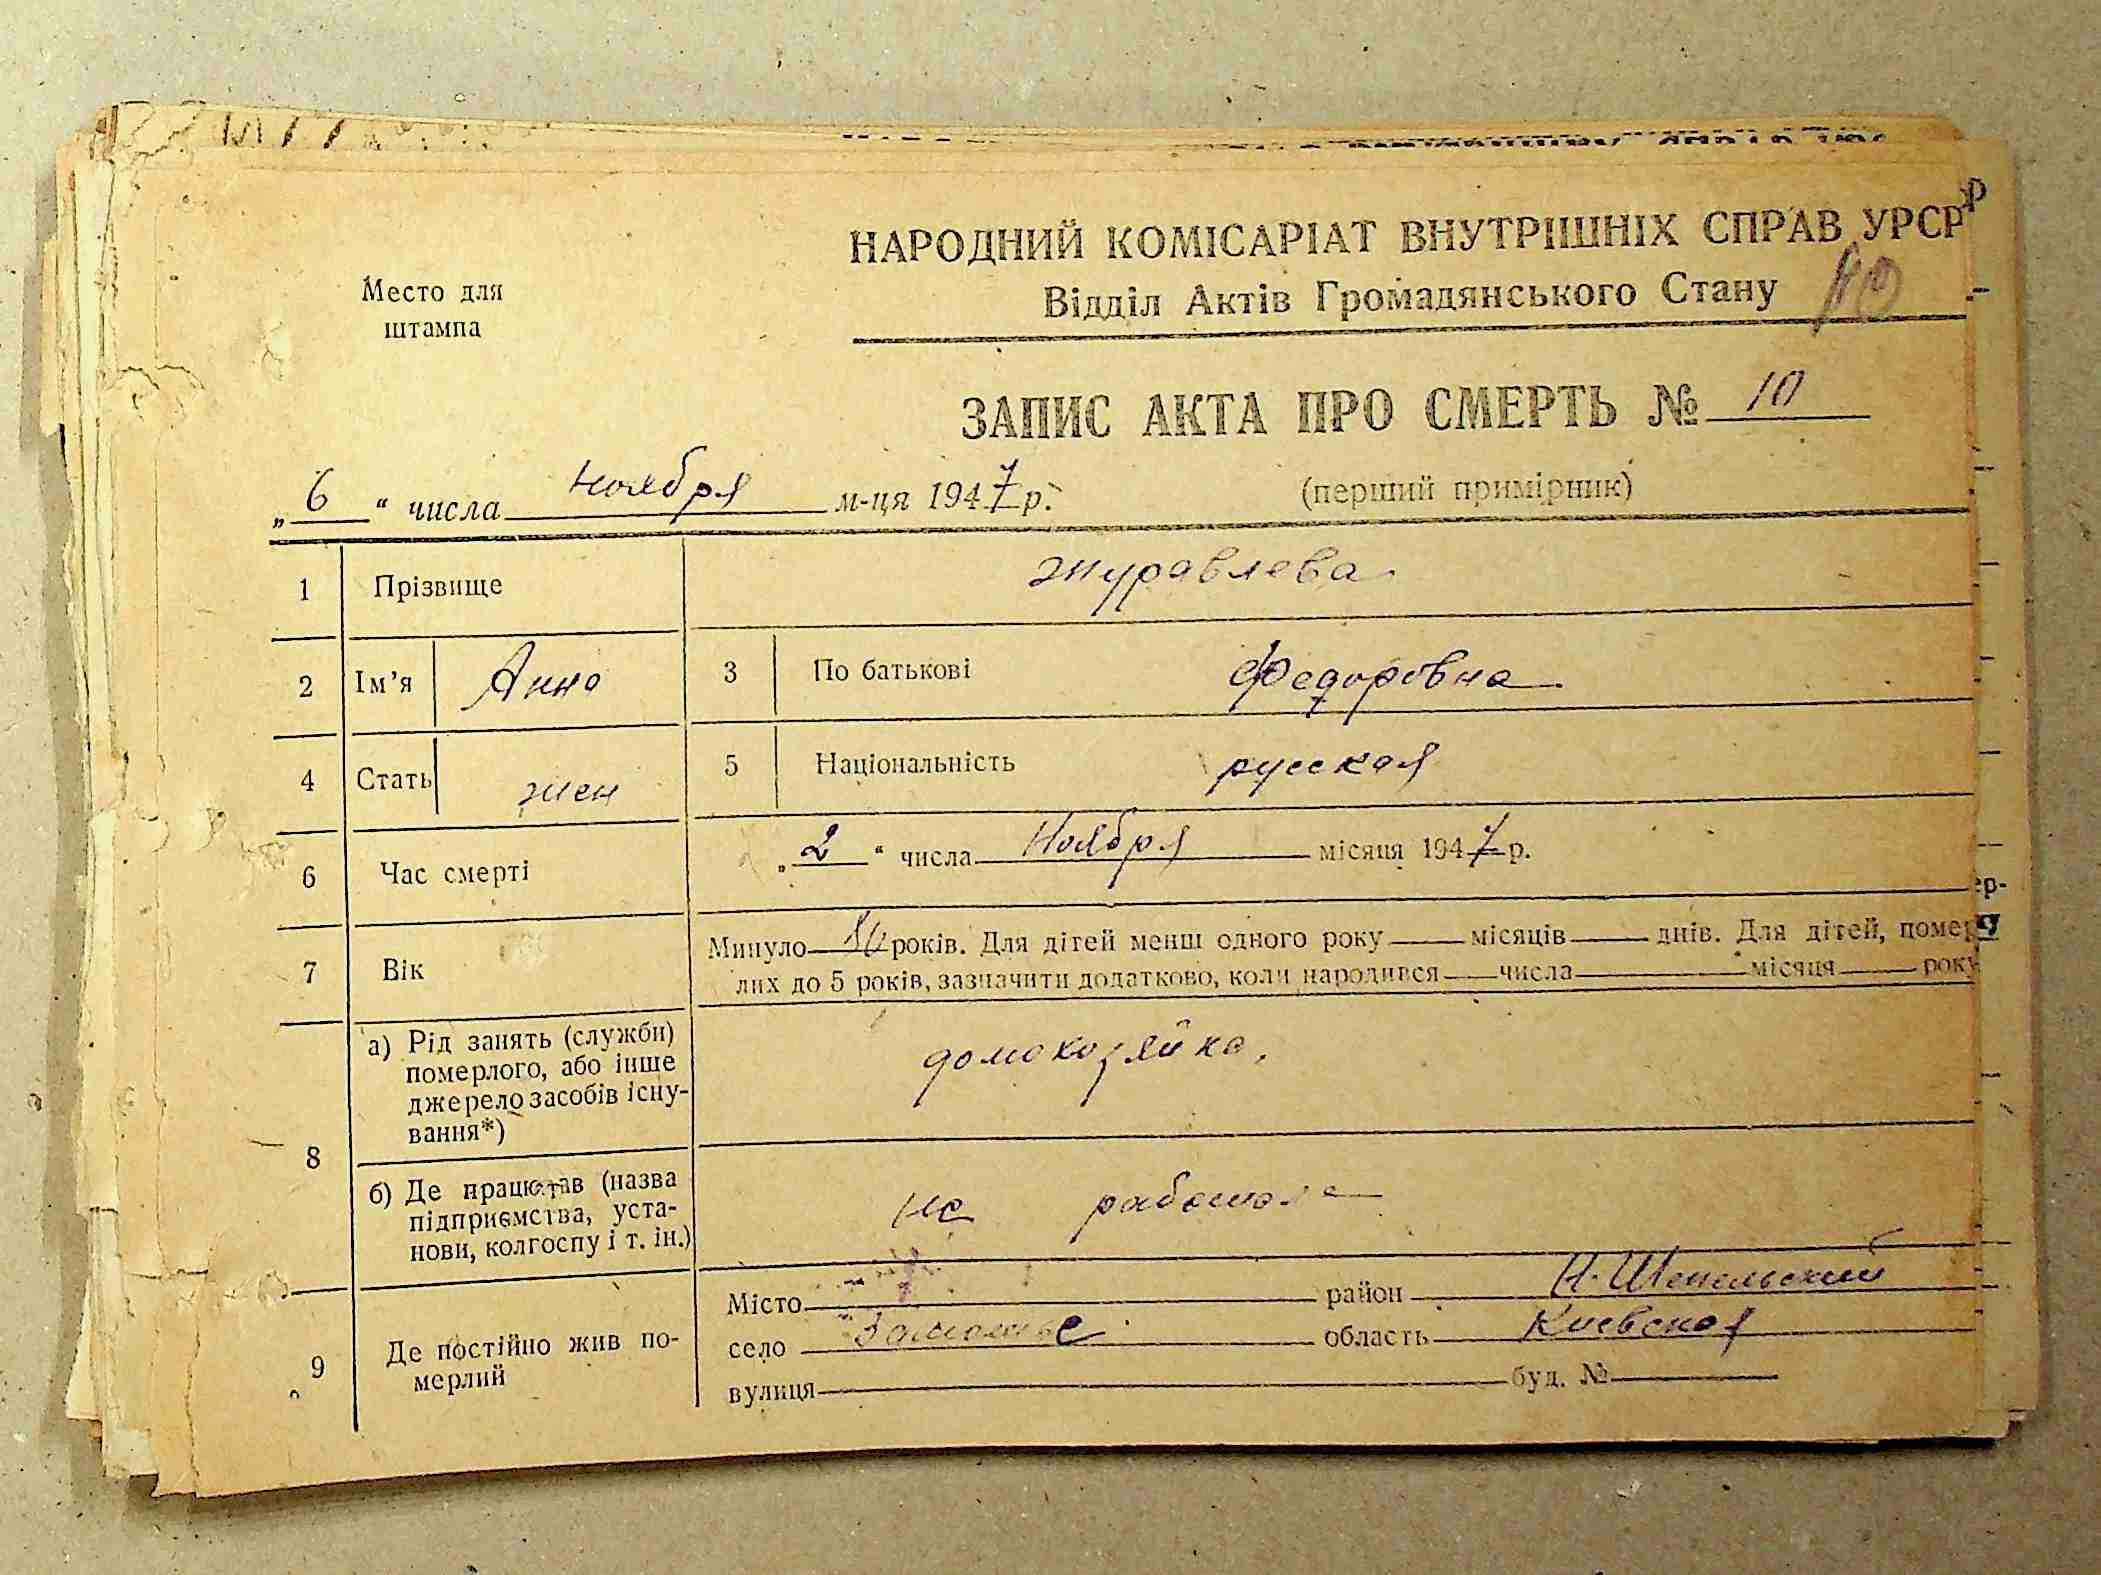 НАРОДНИЙ КОМІСАРІАТ ВНУТРІШНІХ СПРАВ УРСР
Место для
штампа
Відділ Актів Громадянського Стану
10
ЗАПИС АКТА ПРО СМЕРТЬ № 10
„6“ числа Ноября м-ця 1947 р. (перший примірник)
1 Прізвище Журавлева
2 Ім’я Анна 3 По батькові Федоровна
4 Стать жен 5 Національність русская
6 Час смерті „2“ числа Ноября місяця 1947 р.
7 Вік Минуло років. Для дітей менш одного року місяців днів. Для дітей, помер
лих до 5 років, зазначити додатково, коли народився числа місяця року
8 а) Рід занять (служби)
померлого, або інше
джерело засобів існу-
вання*)
домохозяйка.
б) Де працював (назва
підприємства, уста-
нови, колгоспу і т. ін.)
не работала
9 Де постійно жив по-
мерлий
Місто район Н-Шепельский
село область Киевская
вулиця буд. №